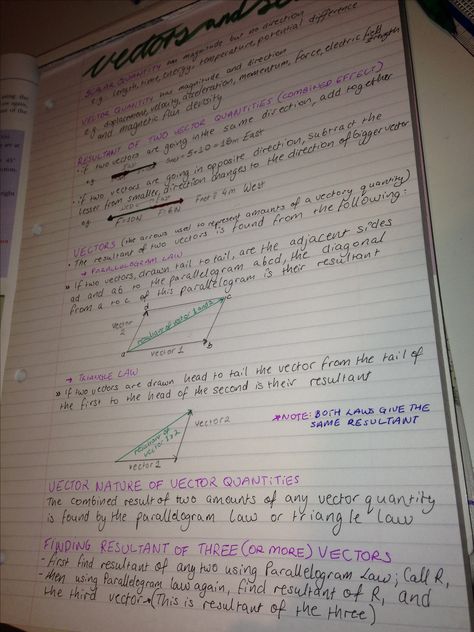 Vectors and
SCALAR QUANTITY has magnitude but no direction
e.g. length, time, energy, temperature, potential difference
VECTOR QUANTITY has magnitude and direction
e.g. displacement, velocity, acceleration, momentum, force, electric field strength
and magnetic flux density
RESULTANT OF TWO VECTOR QUANTITIES (COMBINED EFFECT)
• if two vectors are going in the same direction, add together
eg. 5+10=15m East
• if two vectors are going in opposite direction, subtract the
lesser from smaller, direction changes to the direction of bigger vector
eg. F=10N F=6N Fnet = 4m West
VECTORS (the arrows used to represent amounts of a vectory quantity)
• The resultant of two vectors is found from the following:
→ PARALLELOGRAM LAW
» if two vectors, drawn tail to tail, are the adjacent sides
ad and ab to the parallelogram abcd, the diagonal
from a to c of this parallelogram is their resultant
d
c
vector 2
resultant of vector 1 and 2
a
vector 1
b
→ TRIANGLE LAW
» if two vectors are drawn head to tail the vector from the tail of
the first to the head of the second is their resultant
resultant of vector 1+2
vector 2
vector 1
*NOTE: BOTH LAWS GIVE THE
SAME RESULTANT
VECTOR NATURE OF VECTOR QUANTITIES
The combined result of two amounts of any vector quantity
is found by the parallelogram law or triangle law
FINDING RESULTANT OF THREE (OR MORE) VECTORS
- first find resultant of any two using Parallelogram Law; Call R,
- then using Parallelogram law again, find resultant of R, and
the third vector → (This is resultant of the three)